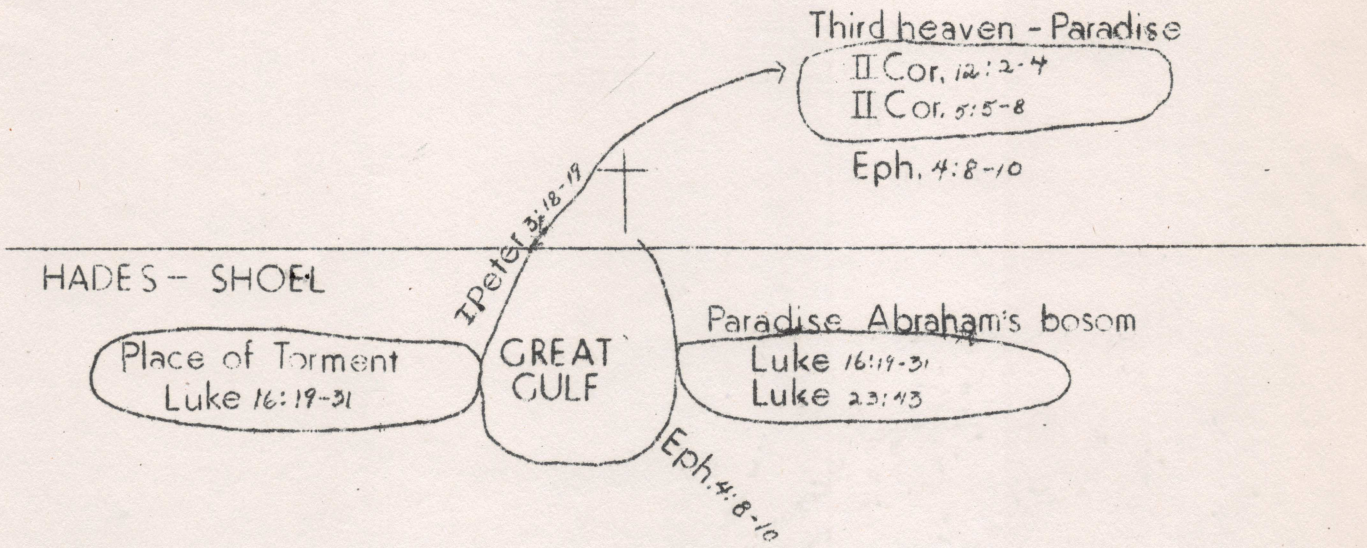 Third heaven - Paradise
II Cor. 12:2-4
II Cor. 5:5-8
Eph. 4:8-10
I Peter 3:18-19
HADES - SHOEL
Place of Torment
Luke 16:19-31
GREAT
GULF
Paradise Abraham's bosom
Luke 16:19-31
Luke 23:43
Eph. 4:8-10